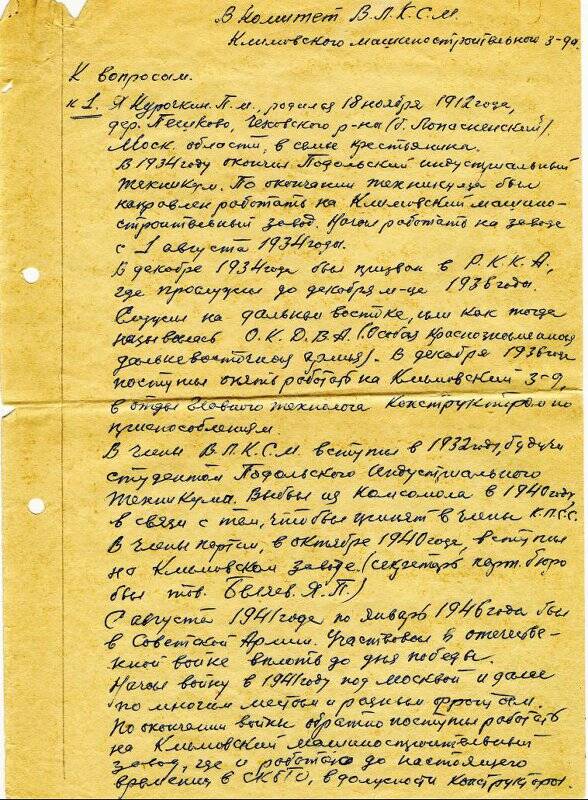 В Комитет В.Л.К.С.М.
Климовского машиностроительного з-да.
К вопросам.
к 1. Я Курочкин П.М., родился 18 ноября 1912 года,
дер. Пешково, Чеховского р-на (б. Лопасненский).
Моск. области, в семье крестьянина.
В 1934 году окончил Подольский индустриальный
техникум. По окончании техникума был
направлен работать на Климовский машино-
строительный завод. Начал работать на заводе
с 1 августа 1934 годы.
В декабре 1934 года был призван в Р.К.К.А,
где прослужил до декабря м-це 1936 годы.
Служил на дальнем востоке, или как тогда
называлась О.К.Д.В.А. (Особая краснознаменная
дальневосточная армия). В декабря 1936 год
поступил опять работать на Климовский з-д,
в отдел главного технолога конструктором по
приспособлениям.
В члены В.Л.К.С.М. вступил в 1932 году, будучи
студентом Подольского индустриального
техникума. Выбыл из комсомола в 1940 году,
в связи с тем, что был принят в члены К.П.С.С.
В члены партии, в октябре 1940 года, вступил
на Климовском заводе. (секретарь парт. бюро
был тов. Беляев. Я.П.)
С августа 1941 года по январь 1946 года был
в Советской Армии. Участвовал в отечестве-
нной войне вплоть до дня победы.
Начал войну в 1941 году под Москвой и далее
по многим местам и разным фронтам.
По окончании войны обратно поступил работать
на Климовский машиностроительный
завод, где и работаю до настоящего
времени в СКБТО, в должности конструктора.